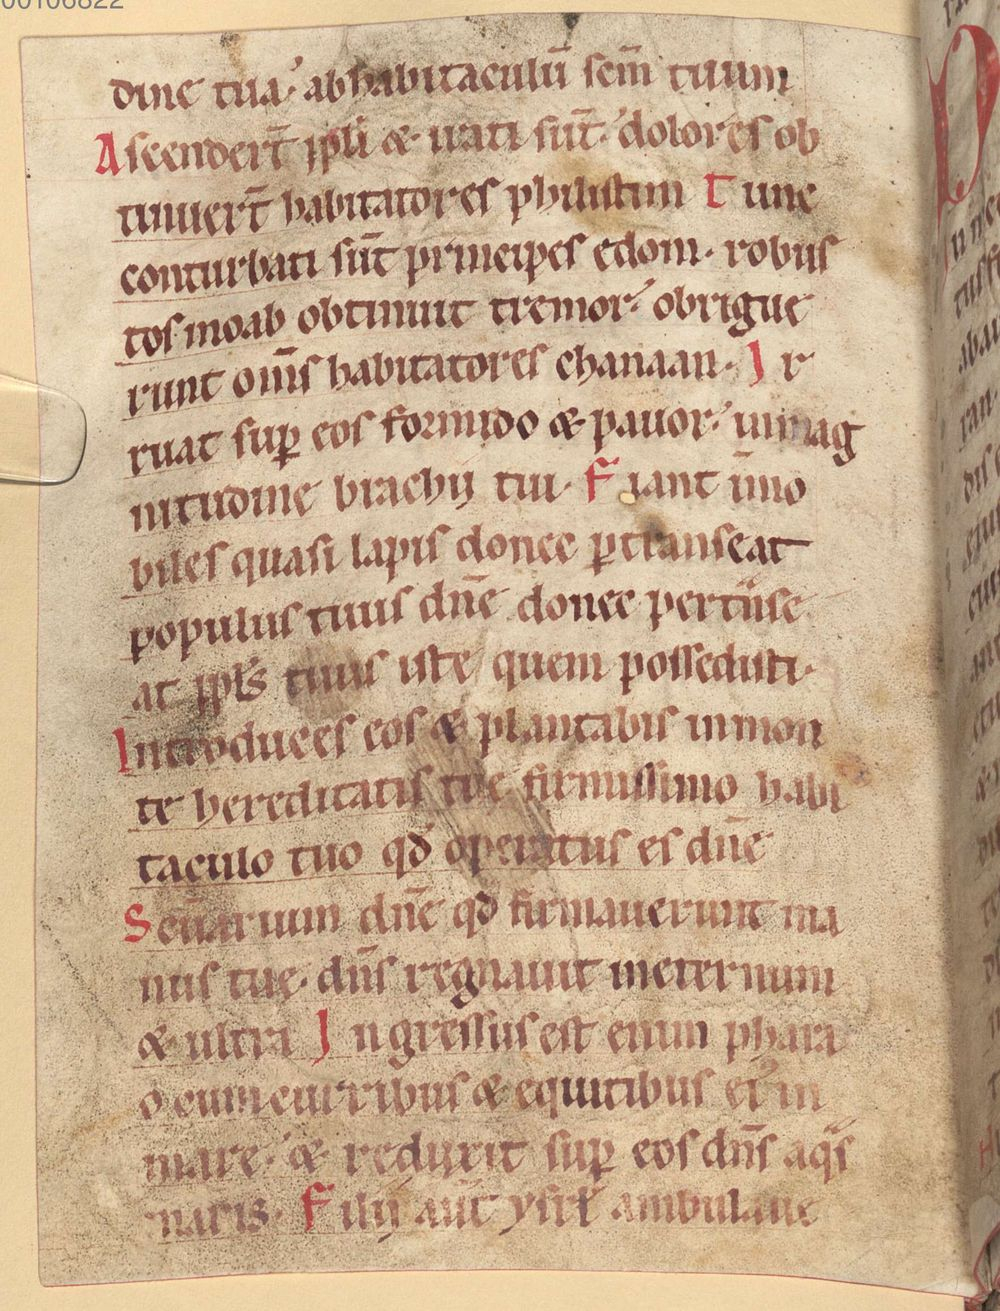 00106822
dine tua · ab habitaculū sc̄m tuum
Ascendert̄ ppl̄i & irati sūt · dolores ob
tinuert̄ habitatores philistim Tunc
conturbati sūt principes edom · robus
tos moab obtinuit tremor · obrigue
runt om̄s habitatores chanaan · Ir
ruat suꝑ eos formido & pauor · inmag
nitudine brachij tui · Fiant īmo
biles quasi lapis donec ꝑtranseat
populus tuus dn̄e donec pertn̄se
at ppl̄s tuus iste quem possedisti ·
Introduces eos & plantabis inmon
te hereditatis tue firmissimo habi
taculo tuo qd̄ operatus es dn̄e
Sc̄uarium dn̄e qd̄ firmauerunt ma
nus tue · dn̄s regnauit ineternum
& ultra Ingressus est enim phara
o cum curribus & equitibus ei᾽ in
mare · & reduxit suꝑ eos dn̄s aq̄s
maris · Filij aūt ysrl̄ ambulaue